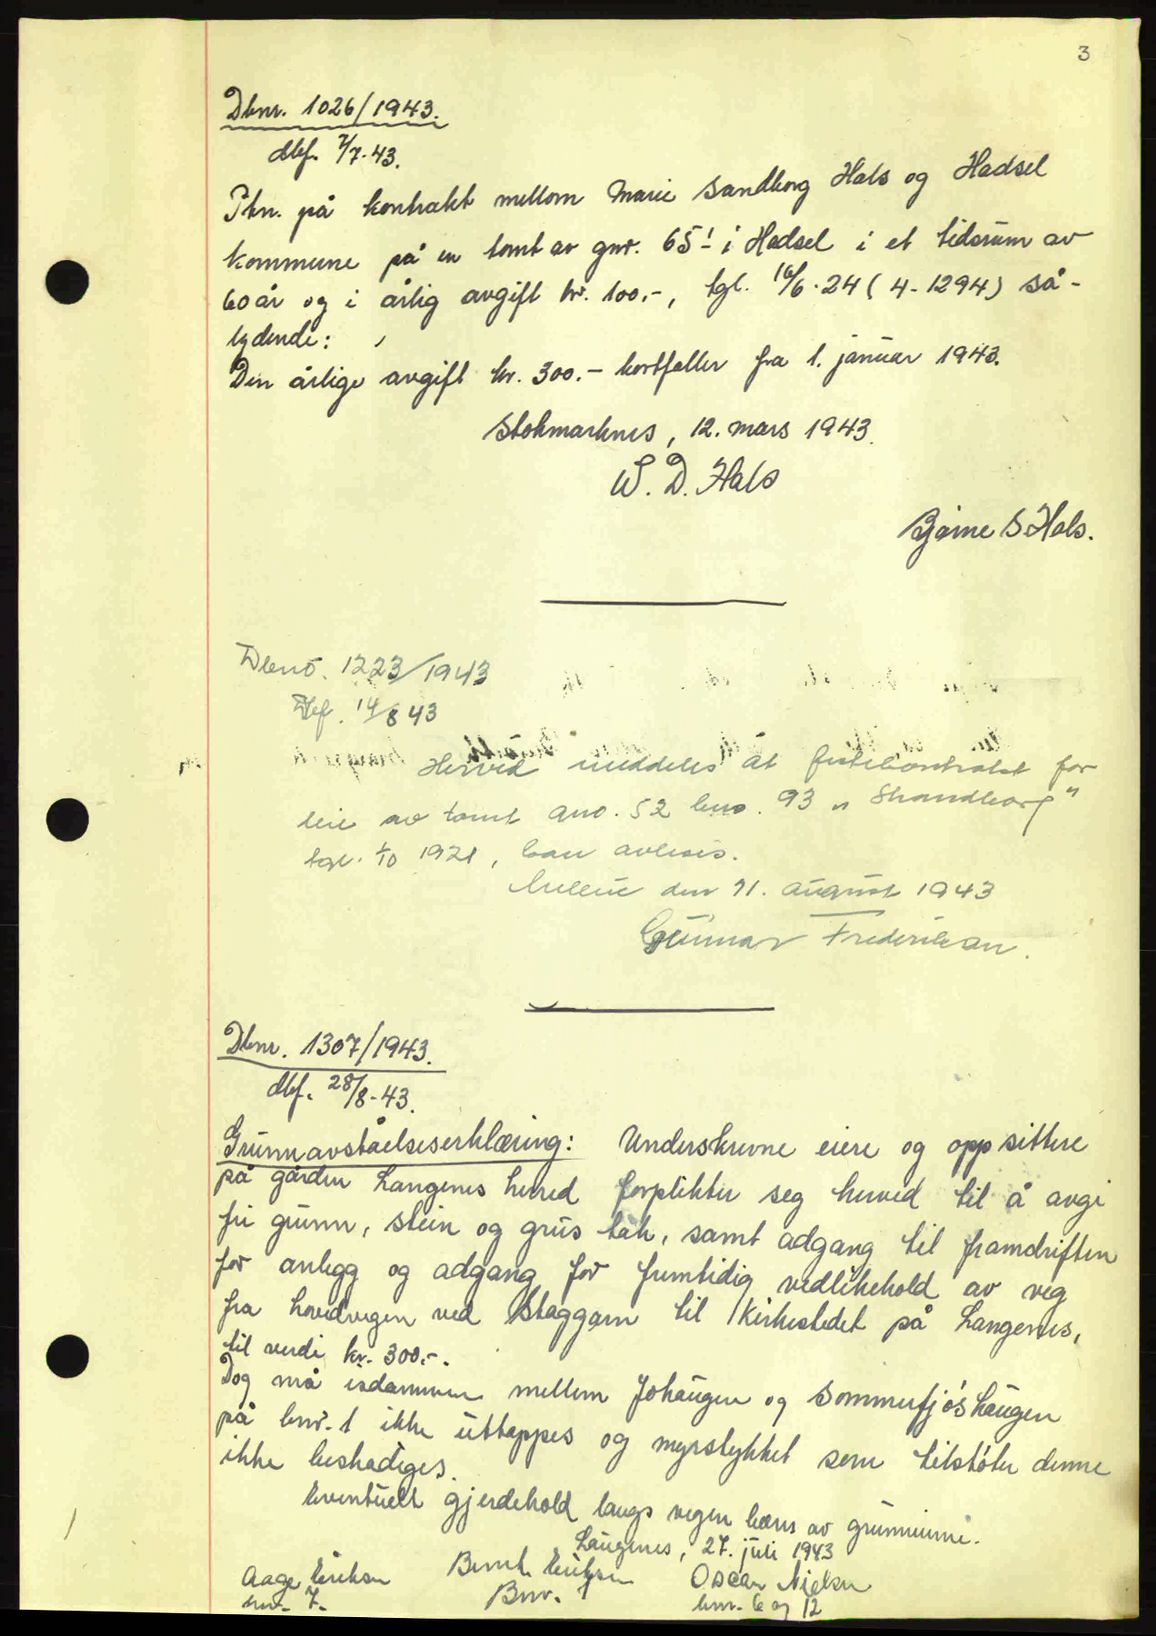 3
Dbnr. 1026/1943.
dbf. 7/7-43.
Ptn. på kontrakt mellom Marie Sandborg Hals og Hadsel
kommune på en tomt av gnr. 65¹ i Hadsel i et tidsrum av
60 år og i årlig avgift kr. 100.-, tgl. 16/6-24 (4-1294) så-
lydende:
Den årlige avgift kr. 300.- bortfaller fra 1. januar 1943.
Stokmarknes, 12. mars 1943.
W. D. Hals
Bjarne S Hals.
Dbno. 1223/1943
Dbf. 14/8 43
Herved meddeles at festekontrakt for
leie av tomt gno. 52 bno. 93 "Strandborg"
tgl. 1/10 1921, kan avleses.
Melbu den 11. august 1943
Gunnar Frederiksen.
Dbnr. 1307/1943.
dbf. 28/8-43.
Grunnavståelseserklæring: Underskrevne eiere og oppsittere
på gården Langenes herred forplikter seg herved til å avgi
fri grunn, stein og grus tak, samt adgang til framdriften
for anlegg og adgang for fremtidig vedlikehold av veg
fra hovedvegen ved Staggarn til Kirkestedet på Langenes,
til verdi kr. 300.-.
Dog må isdammen mellem Johaugen og Sommerfjøshaugen
på bnr. 1 ikke uttappes og myrstykket som tilstøter denne
ikke beskadiges.
Eventuelt gjerdehold langs vegen bæres av grunneierne.
Langenes, 27. juli 1943
Aage Eriksen Bernt Eriksen Oscar Nielsen
bnr. 7. Bnr. bnr. 6 og 12